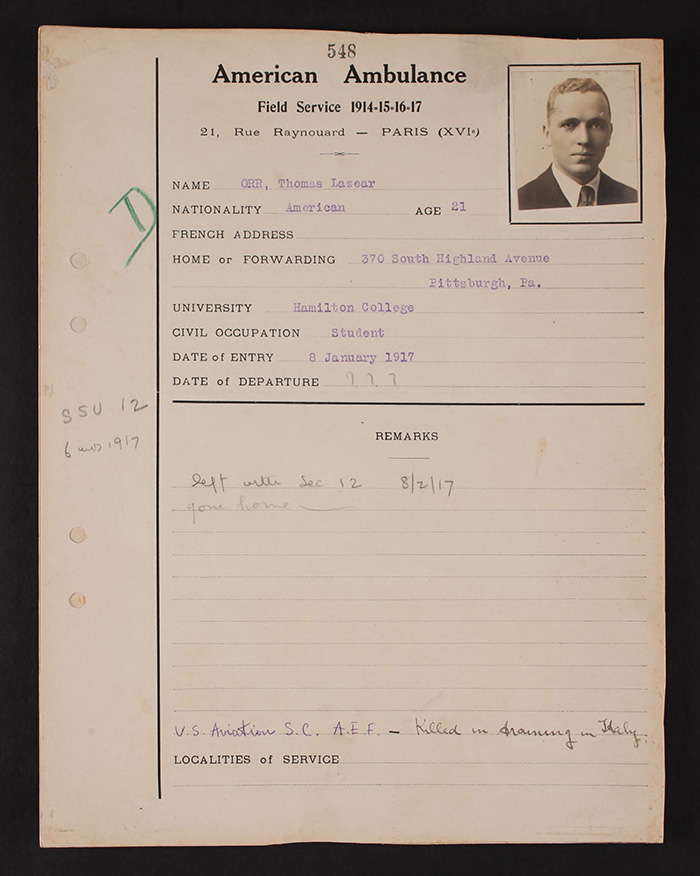 548
American Ambulance
Field Service 1914-15-16-17
21, Rue Raynouard — PARIS (XVIe)
NAME ORR, Thomas Lazear
NATIONALITY American AGE 21
FRENCH ADDRESS
HOME or FORWARDING 370 South Highland Avenue
Pittsburgh, Pa.
UNIVERSITY Hamilton College
CIVIL OCCUPATION Student
DATE of ENTRY 8 January 1917
DATE of DEPARTURE ? ? ?
D
SSU 12
6 mos 1917
REMARKS
left with Sec 12 8/2/17
gone home —
U.S. Aviation S.C. A.E.F. — Killed in training in Italy.
LOCALITIES of SERVICE